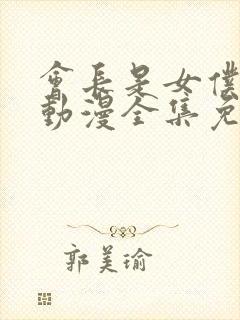 會長是女僕
動漫全集免
郭美瑜